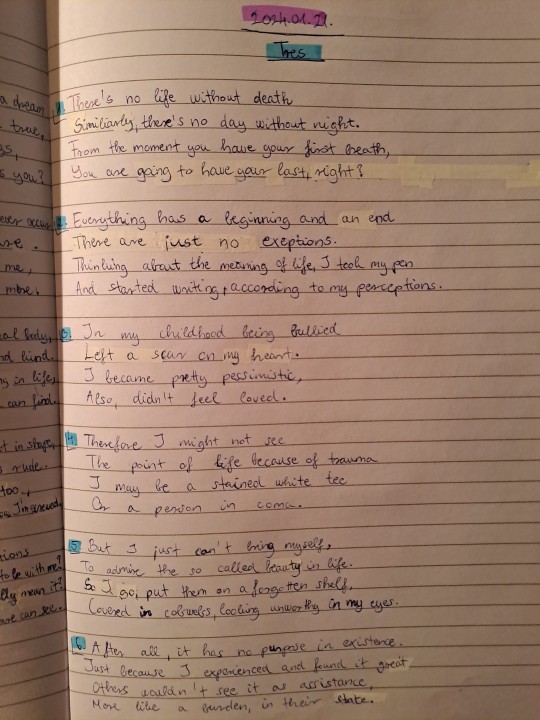 a dream
true,
s you?
ever occur
me,
more.
eal body,
nd kind.
in life,
can find.
t in shape,
rude.
too,
I'm
tions
to be with me?
mean it?
can see.
2024.01.21.
Tres
1. There's no life without death
Similiarly, there's no day without night.
From the moment you have your first breath,
You are going to have your last, right?
2. Everything has a beginning and an end
There are just no exeptions.
Thinking about the meaning of life, I took my pen
And started writing, according to my perceptions.
3. In my childhood being bullied
Left a scar on my heart.
I became pretty pessimistic,
Also, didn't feel loved.
4. Therefore I might not see
The point of life because of trauma
I may be a stained white tee
Or a person in coma.
5. But I just can't bring myself,
To admire the so called beauty in life.
So I go, put them on a forgotten shelf,
Covered in cobwebs, looking unworthy in my eyes.
6. After all, it has no purpose in existence.
Just because I experienced and found it great
Others wouldn't see it as assistance,
More like a burden, in their state.